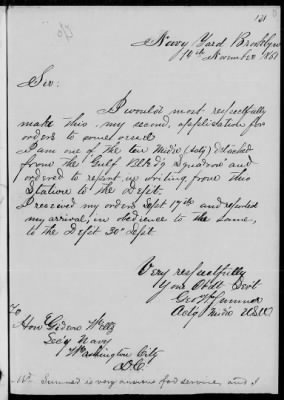 131
Navy Yard Brooklyn
14th November 1861
Sir:
I would most respectfully
make this my second application for
orders to some vessel
I am one of the ten Mids (actg) detached
from the Gulf Blk'dg Squadron and
ordered to report in writing from this
Station to the Dept.
I received my orders Sept 17th and reported
my arrival, in obedience to the same,
to the Dept 30th Sept
Very respectfully
Your Obdt Servt
Geo W Sumner
Actg Mids U.S.N
To
Hon Gideon Welles
Sec'y Navy
Washington City
D.C.
Mr. Sumner is very anxious for service, and I